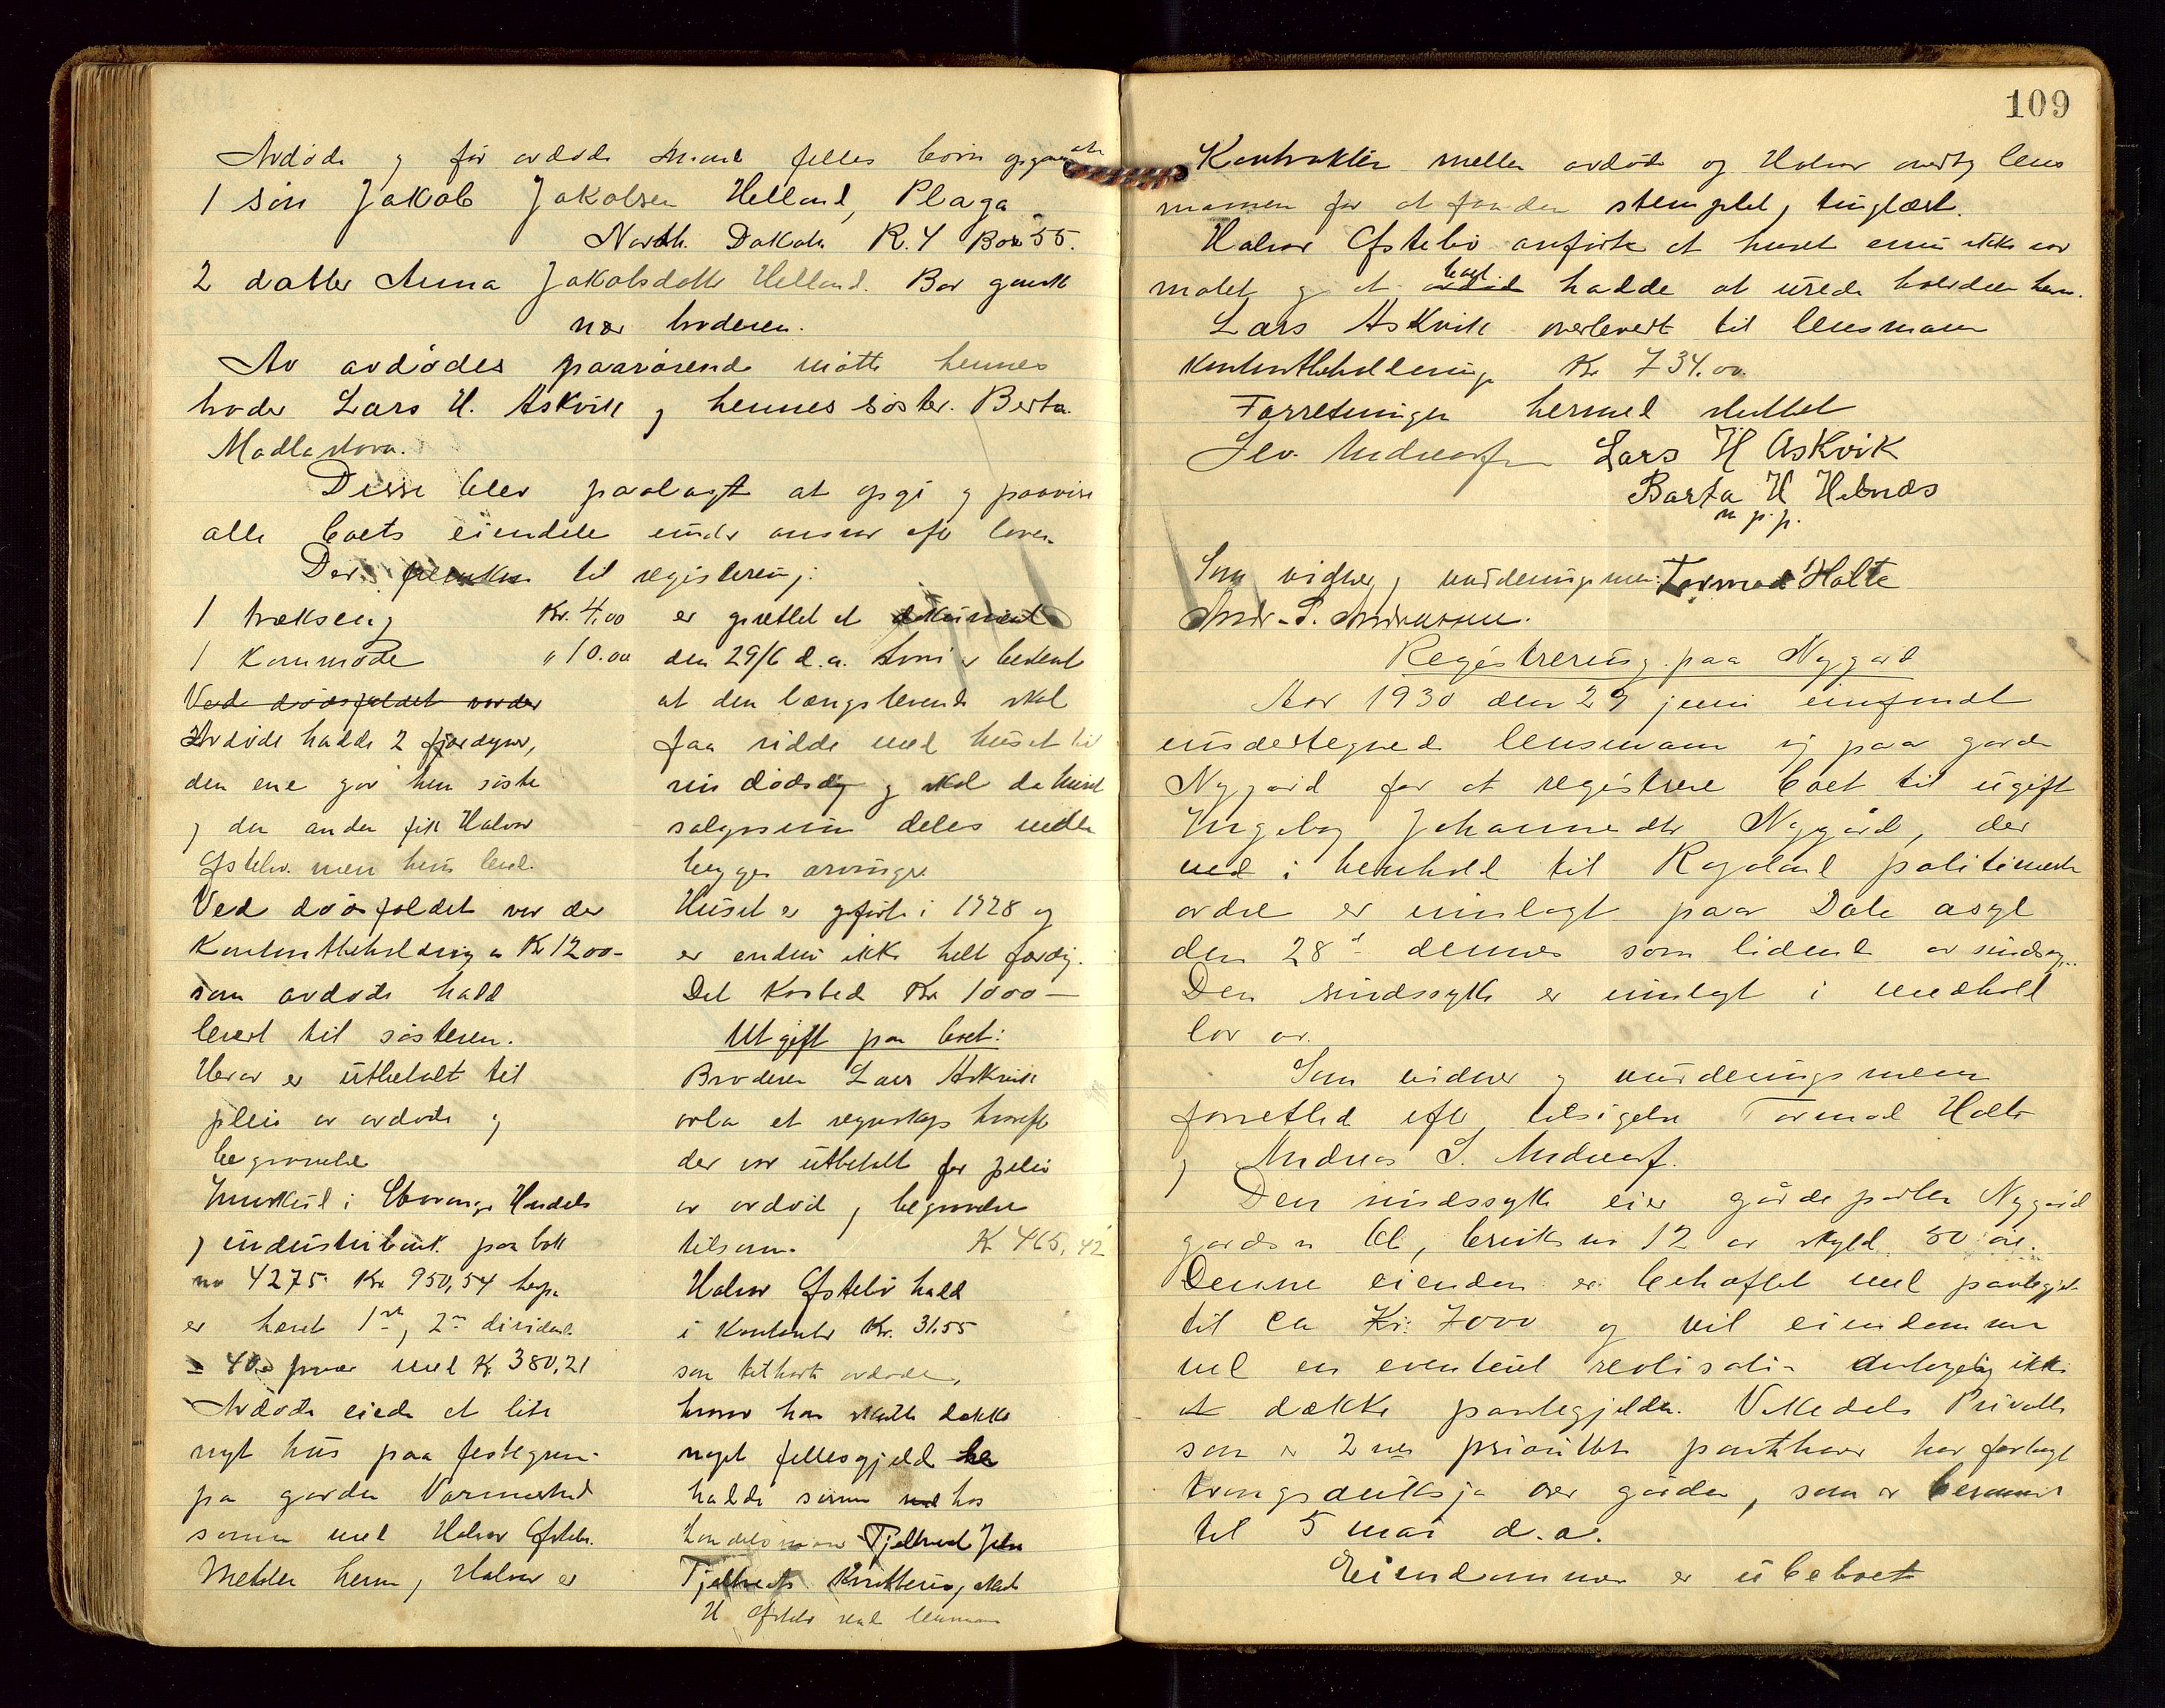 Avdøde og før avdøde mand felles born
1 søn Jakob Jakobsen Helland, Plaga
North. Dakota R. 4 Box 55.
2 datter Anna Jakobsdatter Helland. Bor
nær broderen.
Av avdødes paarørende møtte hennes
broder Lars H. Askvik og hennes søster. Berta
Madlandova.
Disse blev paalagt at opgi og paavise
alle boets eiendele under ansvar efter loven
Der til registrering:
1 trækseng Kr. 4,00
1 Kommode " 10.00
Ved dødsfaldet var der
Avdøde hadde 2 fjærdyner,
den ene gav hun søster
og den anden fik Halvor
Østebø. men hun
Ved dødsfaldet var der
Kontantbeholdning av Kr 1200-
som avdøde hadde
levert til søsteren.
Herav er utbetalt til
pleie av avdøde og
begravelse
Innskud i Stavanger Handels
og industribank paa bok
no 4275. Kr. 950,54 herpaa
er hævet 1ste, 2en dividende
= 40% med Kr. 380,21
Avdøde eiede et lite
nyt hus paa festegrunn
på garden Varmested
sammen med Halvor Østebø.
Mellem henne og Halvor er
er oprettet et dokument
den 29/6 d.a. hvori er bestemt
at den længstlevende skal
faa sidde med huset til
sin dødsdag og skal da huset
salgssum deles mellem
begges arvinger.
Huset er opført i 1928 og
er endnu ikke helt færdig.
Det kosted Kr 1000-
Utgift paa boet:
Broderen Lars Askvik
avla et regnskap hvorefter
der var utbetalt for pleie
av avdøde og begravelse
tilsammen Kr 465,42
Halvor Østebø hadde
i kontanter Kr. 31.55
som tilhørte avdøde,
hvorav han skulle dække
noget fellesgjeld
hadde sammen med hos
handelsmann Tjeltveit
Tjeltveits Kvittering
H Østebø lensmann
109
Kontrakten mellem avdøde og Halvor lens
mannen for at faa den stemplet og tinglæst.
Halvor Østebø anførte at huset ennu ikke var
malet og at hadde at utrede
Lars Askvik overlevert til lensmann
kontantbeholdning Kr 734.00.
Forretningen hermed sluttet
Sev. Andreassen Lars H Askvik
Barta H Hebnæs
m p. p.
Som vidner og vurderingsmenn: Tormod Holte
Andr. S. Andreassen.
Registrering paa Nygård
Aar 1930 den 29 juni innfandt
undertegnede lensmann sig paa garden
Nygård for at registrere boet til ugift
Ingeborg Johannesdtr Nygård, der
ved i henhold til Rogaland politimester
ordre er innlagt paa Dale asyl
den 28d dennes som lidende av sindssyk.
Den sindssyke er innlagt i medhold
lov av.
Som vidner og vurderingsmenn
forrettet efter tilsigelse Tormod Holte
og Andreas S. Andreassen.
Den sindssyke eier gårdeparten Nygård
gards n 66, bruks nr 12 av skyld 50 øre.
Denne eiendom er beheftet med pantegjeld
til ca Kr: 7000 og vil eiendommen
ved en eventuel realisation antagelig ikke
dække pantegjelden. Vikedals Privatbk
som er 2nen prioritets panthaver har forlangt
tvangsauksjon over gården, som er berammet
til 5 mai d.a.
Eiendommen er ubeboet